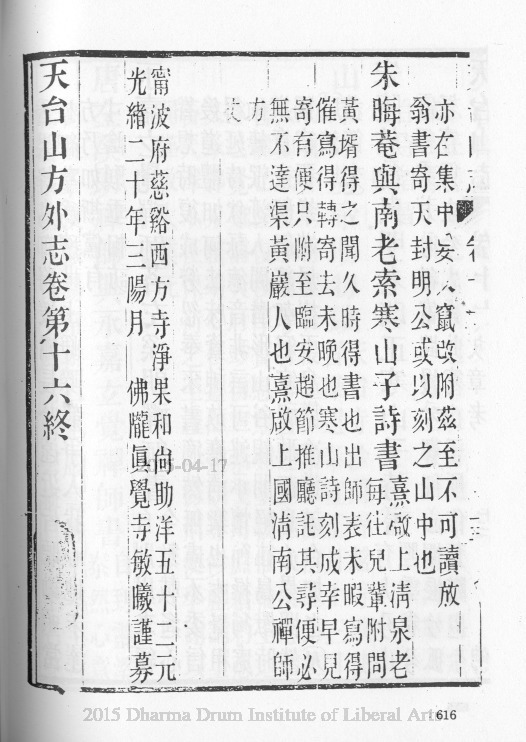 亦在集中妄人竄改附茲至不可讀放
翁書寄天封明公或以刻之山中也
朱晦菴與南老索寒山子詩書熹啟上清泉老
每往兒輩附問
黃壻得之聞久時得書也出師表未暇寫得
催寫得轉寄去未晚也寒山詩刻成幸早見
寄有便只附至臨安趙節推廳託其尋便必
無不達渠黃巖人也熹放上國清南公禪師
方
甯波府慈谿西方寺淨果和尚助洋五十二元
光緒二十年三陽月 佛隴眞覺寺敏曦謹募
天台山方外志卷第十六終
2015-04-17
2015 Dharma Drum Institute of Liberal Arts
616